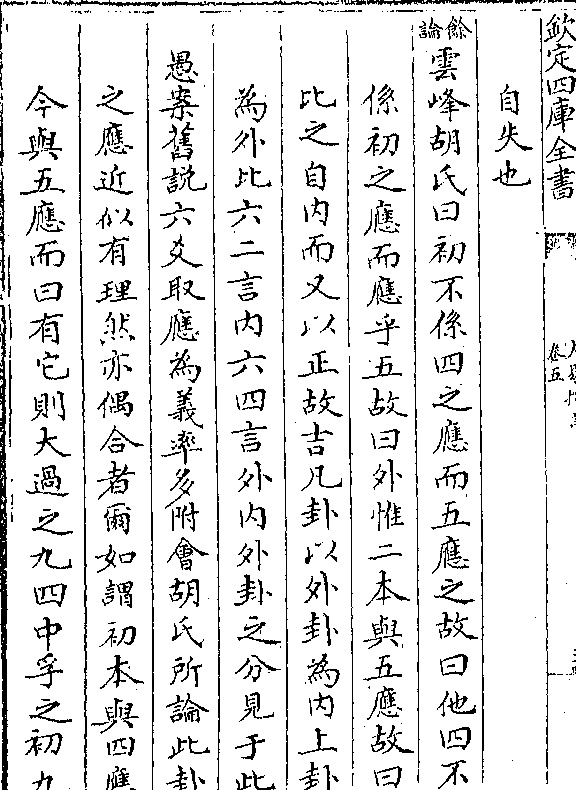 欽定四庫全書
卷五
自失也
餘論
雲峰胡氏曰初不係四之應而五應之故曰他四不
係初之應而應乎五故曰外惟二本與五應故曰
比之自内而又以正故吉凡卦以外卦為内上卦
為外比六二言内六四言外内外卦之分見于此
愚案舊説六爻取應為義率多附會胡氏所論此卦
之應近似有理然亦偶合者爾如謂初本與四應
今與五應而曰有它則大過之九四中孚之初九